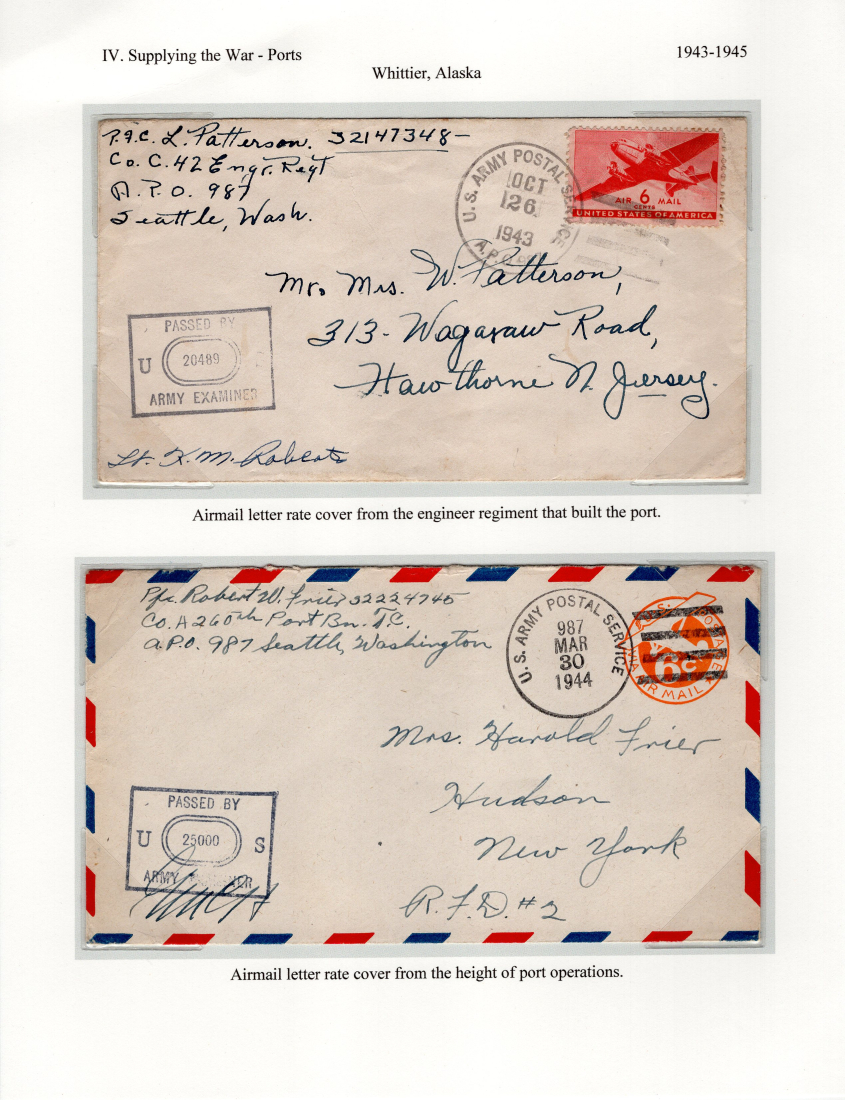 IV. Supplying the War - Ports
1943-1945
Whittier, Alaska
P.F.C. L. Patterson. 32147348-
Co. C. 42 Engr. Regt
A. P. O. 987
Seattle, Wash.
U. S. ARMY POSTAL SERVICE
OCT
26
1943
A.P.O.
AIR 6 MAIL
CENTS
UNITED STATES OF AMERICA
Mr. Mrs. W. Patterson,
313- Wagaraw Road,
Hawthorne N. Jersey.
PASSED BY
U 20489 S
ARMY EXAMINER
Lt. K. M. Roberts
Airmail letter rate cover from the engineer regiment that built the port.
Pfc. Robert W. Frier 32224745
Co. A 260th Port Bn. T.C.
A.P.O. 987 Seattle, Washington
U. S. ARMY POSTAL SERVICE
987
MAR
30
1944
U.S. POSTAGE
6¢
VIA AIR MAIL
Mrs. Harold Frier
Hudson
New York
R. F. D. #2
PASSED BY
U 25000 S
ARMY EXAMINER
Airmail letter rate cover from the height of port operations.